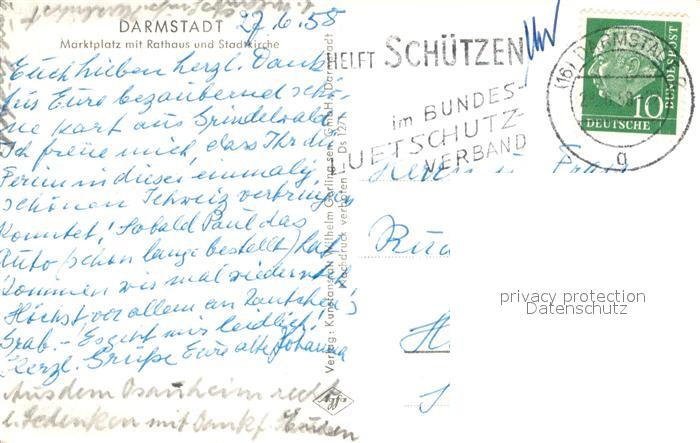 DARMSTADT 27.6.58
Marktplatz mit Rathaus und Stadtkirche
Euch lieben herzl. Dank
für Eure bezaubernd schö-
ne Kart aus Grindelwald.
Ich freue mich, dass Ihr die
Ferien in dieser einmalig
schönen Schweiz verbringen
konntet! Sobald Paul das
Auto schon lange bestellt, hat
kommen wir mal wieder
Höchst vor allem an
Grab. - Es geht mir leidlich!
Herzl. Grüße Eure alte Johanna
Aus dem recht
Gedenken mit Dank
Verlag: Kunstanstalt Wilhelm Gerling sen. GmbH, Darmstadt
Nachdruck verboten Ds 12/1
Agfa
HELFT SCHÜTZEN
im BUNDES-
LUFTSCHUTZ-
VERBAND
(16) DARMSTADT 2
g
DEUTSCHE BUNDESPOST
10
Herrn u. Frau
privacy protection
Datenschutz